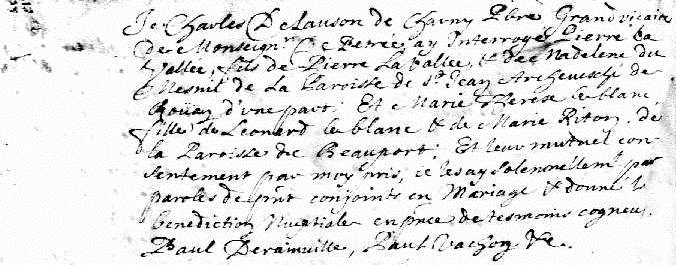 Je Charles De Lauson de Charny Pbre Grand vicaire
de Monseignr De Petrée, ay Interrogé Pierre La
Vallee, fils de Pierre La Vallee, & de Madelene du
Mesnil de La Paroisse de St Jean Archevesché de
Roüan d'une part; Et Marie Therese le blanc
fille de Leonard le blanc & de Marie Riton, de
la Paroisse de Beauport; Et leur mutuel con-
sentement par moy pris, ie les ay solennellemt par
paroles de pnt conjoints en Mariage & donné la
benediction Nuptiale en pnce de tesmoins cogneus,
Paul Derainville, Paul Vachon &c.